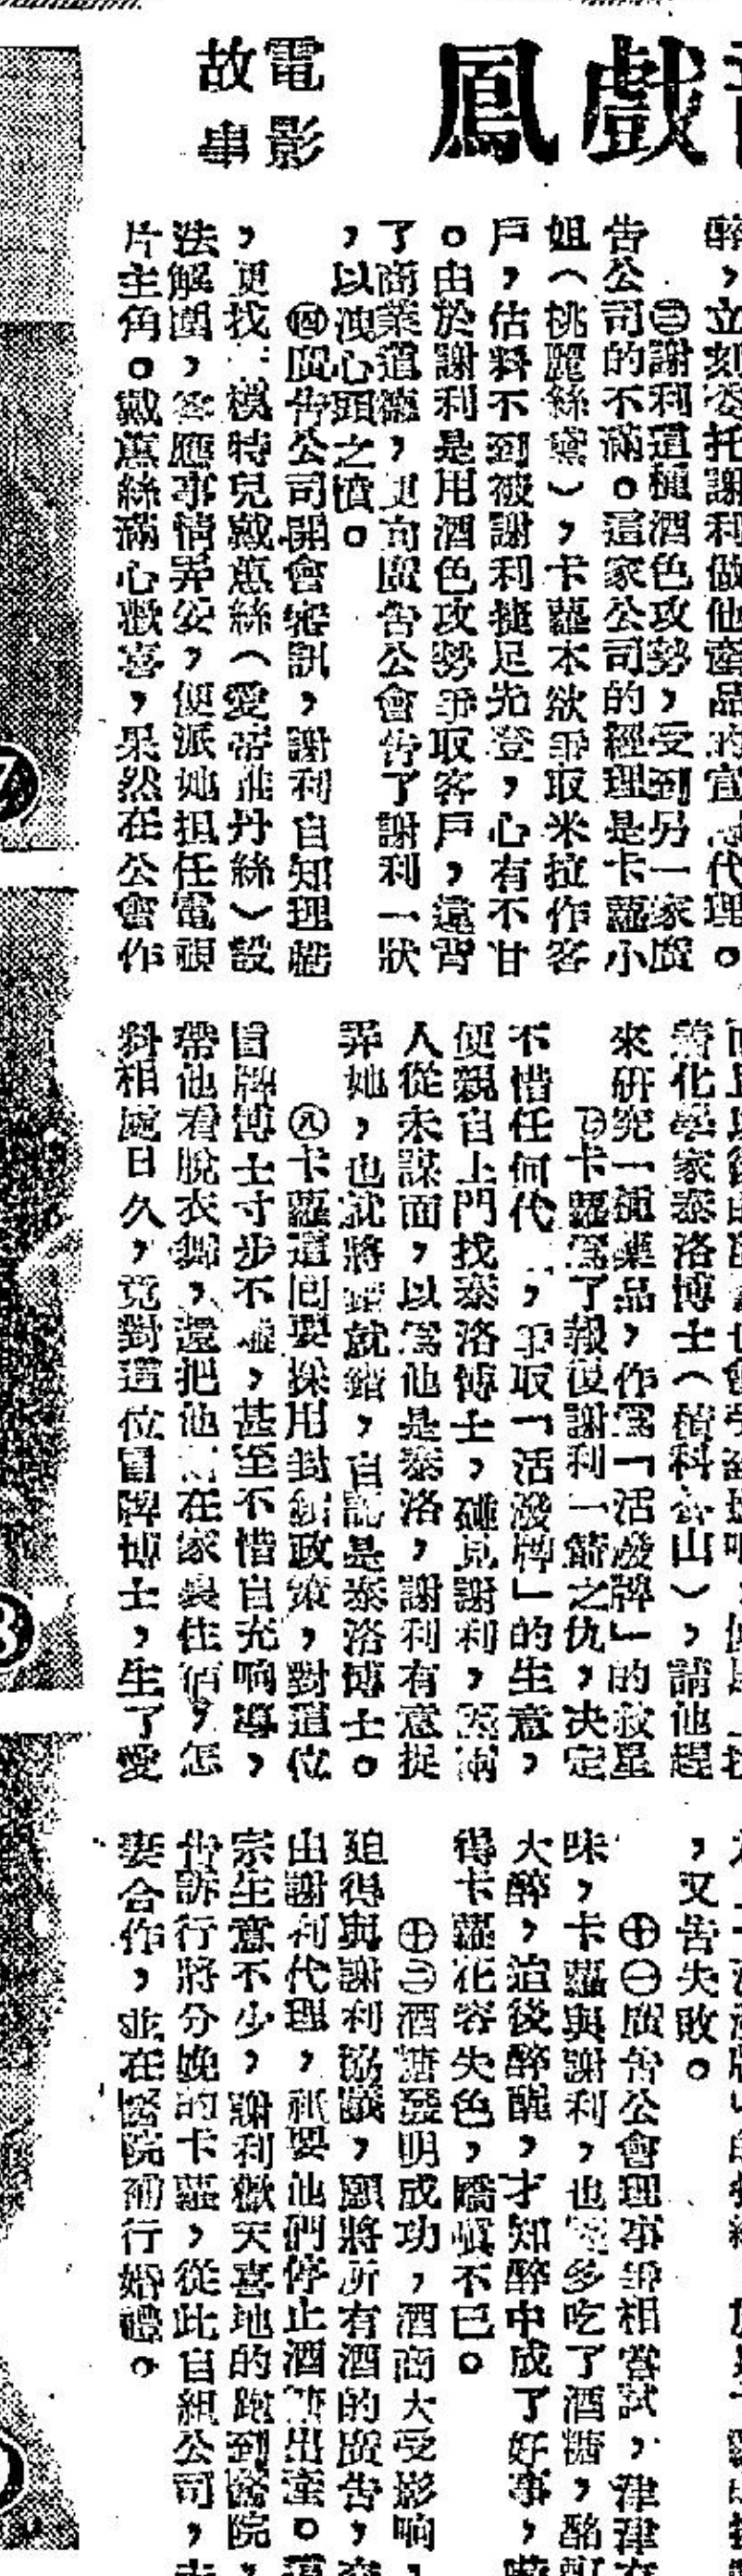 戲鳳
電影
故事
醉，立刻委托謝利做他產品的宣代理。
㊂謝利這種酒色攻勢，受到另一家廣
告公司的不滿。這家公司的經理是卡蘿小
姐（桃麗絲黛），卡蘿本欲爭取米拉作客
戶，估料不到被謝利捷足先登，心有不甘
。由於謝利是用酒色攻勢爭取客戶，違背
了商業道德，更向廣告公會告了謝利一狀
，以洩心頭之憤。
㊃廣告公司開會審訊，謝利自知理虧
，更找模特兒戴蕙絲（愛蒂丹絲）設
法解圍，答應事情弄妥，便派她担任電視
片主角。戴蕙絲滿心歡喜，果然在公會作
化學家泰洛博士（積科山），請他趕
來研究一種藥品，作為「活潑牌」的救星
卡蘿為了報復謝利一箭之仇，決定
不惜任何代，爭取「活潑牌」的生意，
便親自上門找泰洛博士，碰見謝利，兩
人從未謀面，以為他是泰洛，謝利有意捉
弄她，也就將錯就錯，自認是泰洛博士。
㊇卡蘿這回要採用封鎖政策，對這位
冒牌博士寸步不離，甚至不惜自充响導，
帶他看脫衣舞，還把他在家裏住宿，怎
料相處日久，竟對這位冒牌博士，生了愛
，又告失敗。
㊉㊀廣告公會理事爭相嘗試，津津
味，卡蘿與謝利，也多吃了酒糖，酩酊
大醉，這後醉醒，才知醉中成了好事，
得卡蘿花容失色，嬌嗔不已。
㊉㊁酒糖發明成功，酒商大受影响，
迫得與謝利協議，願將所有酒的廣告，
由謝利代理，祇要他們停止酒糖出產。
宗生意不少，謝利歡天喜地的跑到醫院，
告訴行將分娩的卡蘿，從此自組公司，夫
妻合作，並在醫院補行婚禮。